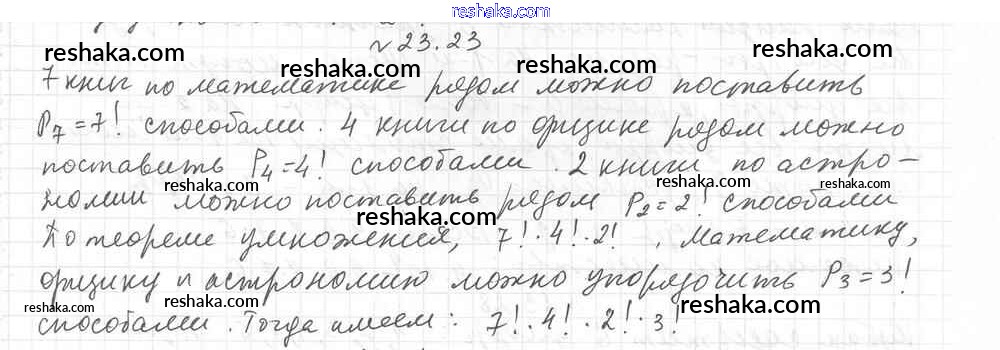 reshaka.com
№ 23.23
reshaka.com reshaka.com reshaka.com reshaka.com
7 книг по математике рядом можно поставить
P₇ = 7! способами. 4 книги по физике рядом можно
поставить P₄ = 4! способами. 2 книги по астро-
reshaka.com reshaka.com
номии можно поставить рядом P₂ = 2! способами
reshaka.com
По теореме умножения, 7! · 4! · 2! , математику,
физику и астрономию можно упорядочить P₃ = 3!
reshaka.com reshaka.com reshaka.com reshaka.com
способами. Тогда имеем: 7! · 4! · 2! · 3!